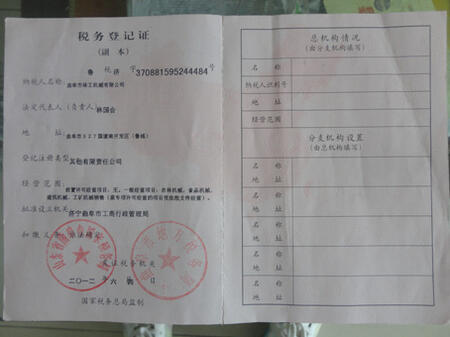 税务登记证
(副本)
鲁 税 济 字 370881595244484 号
纳税人名称: 曲阜市 工机械有限公司
法定代表人(负责人) 林国会
地 址: 曲阜市327国道南开发区(鲁城)
登记注册类型 其他有限责任公司
经营范围: 前置许可经营项目:无。一般经营项目:农用机械、食品机械、
建筑机械、工矿机械销售
批准设立机关: 济宁曲阜市工商行政管理局
扣缴义务: 依法确定
发证税务机关
二〇一二 年 六 月 日
国家税务总局监制
总机构情况
(由分支机构填写)
名 称
纳税人识别号
地 址
经营范围
分支机构设置
(由总机构填写)
名 称
地 址
名 称
地 址
名 称
地 址
名 称
地 址
名 称
地 址